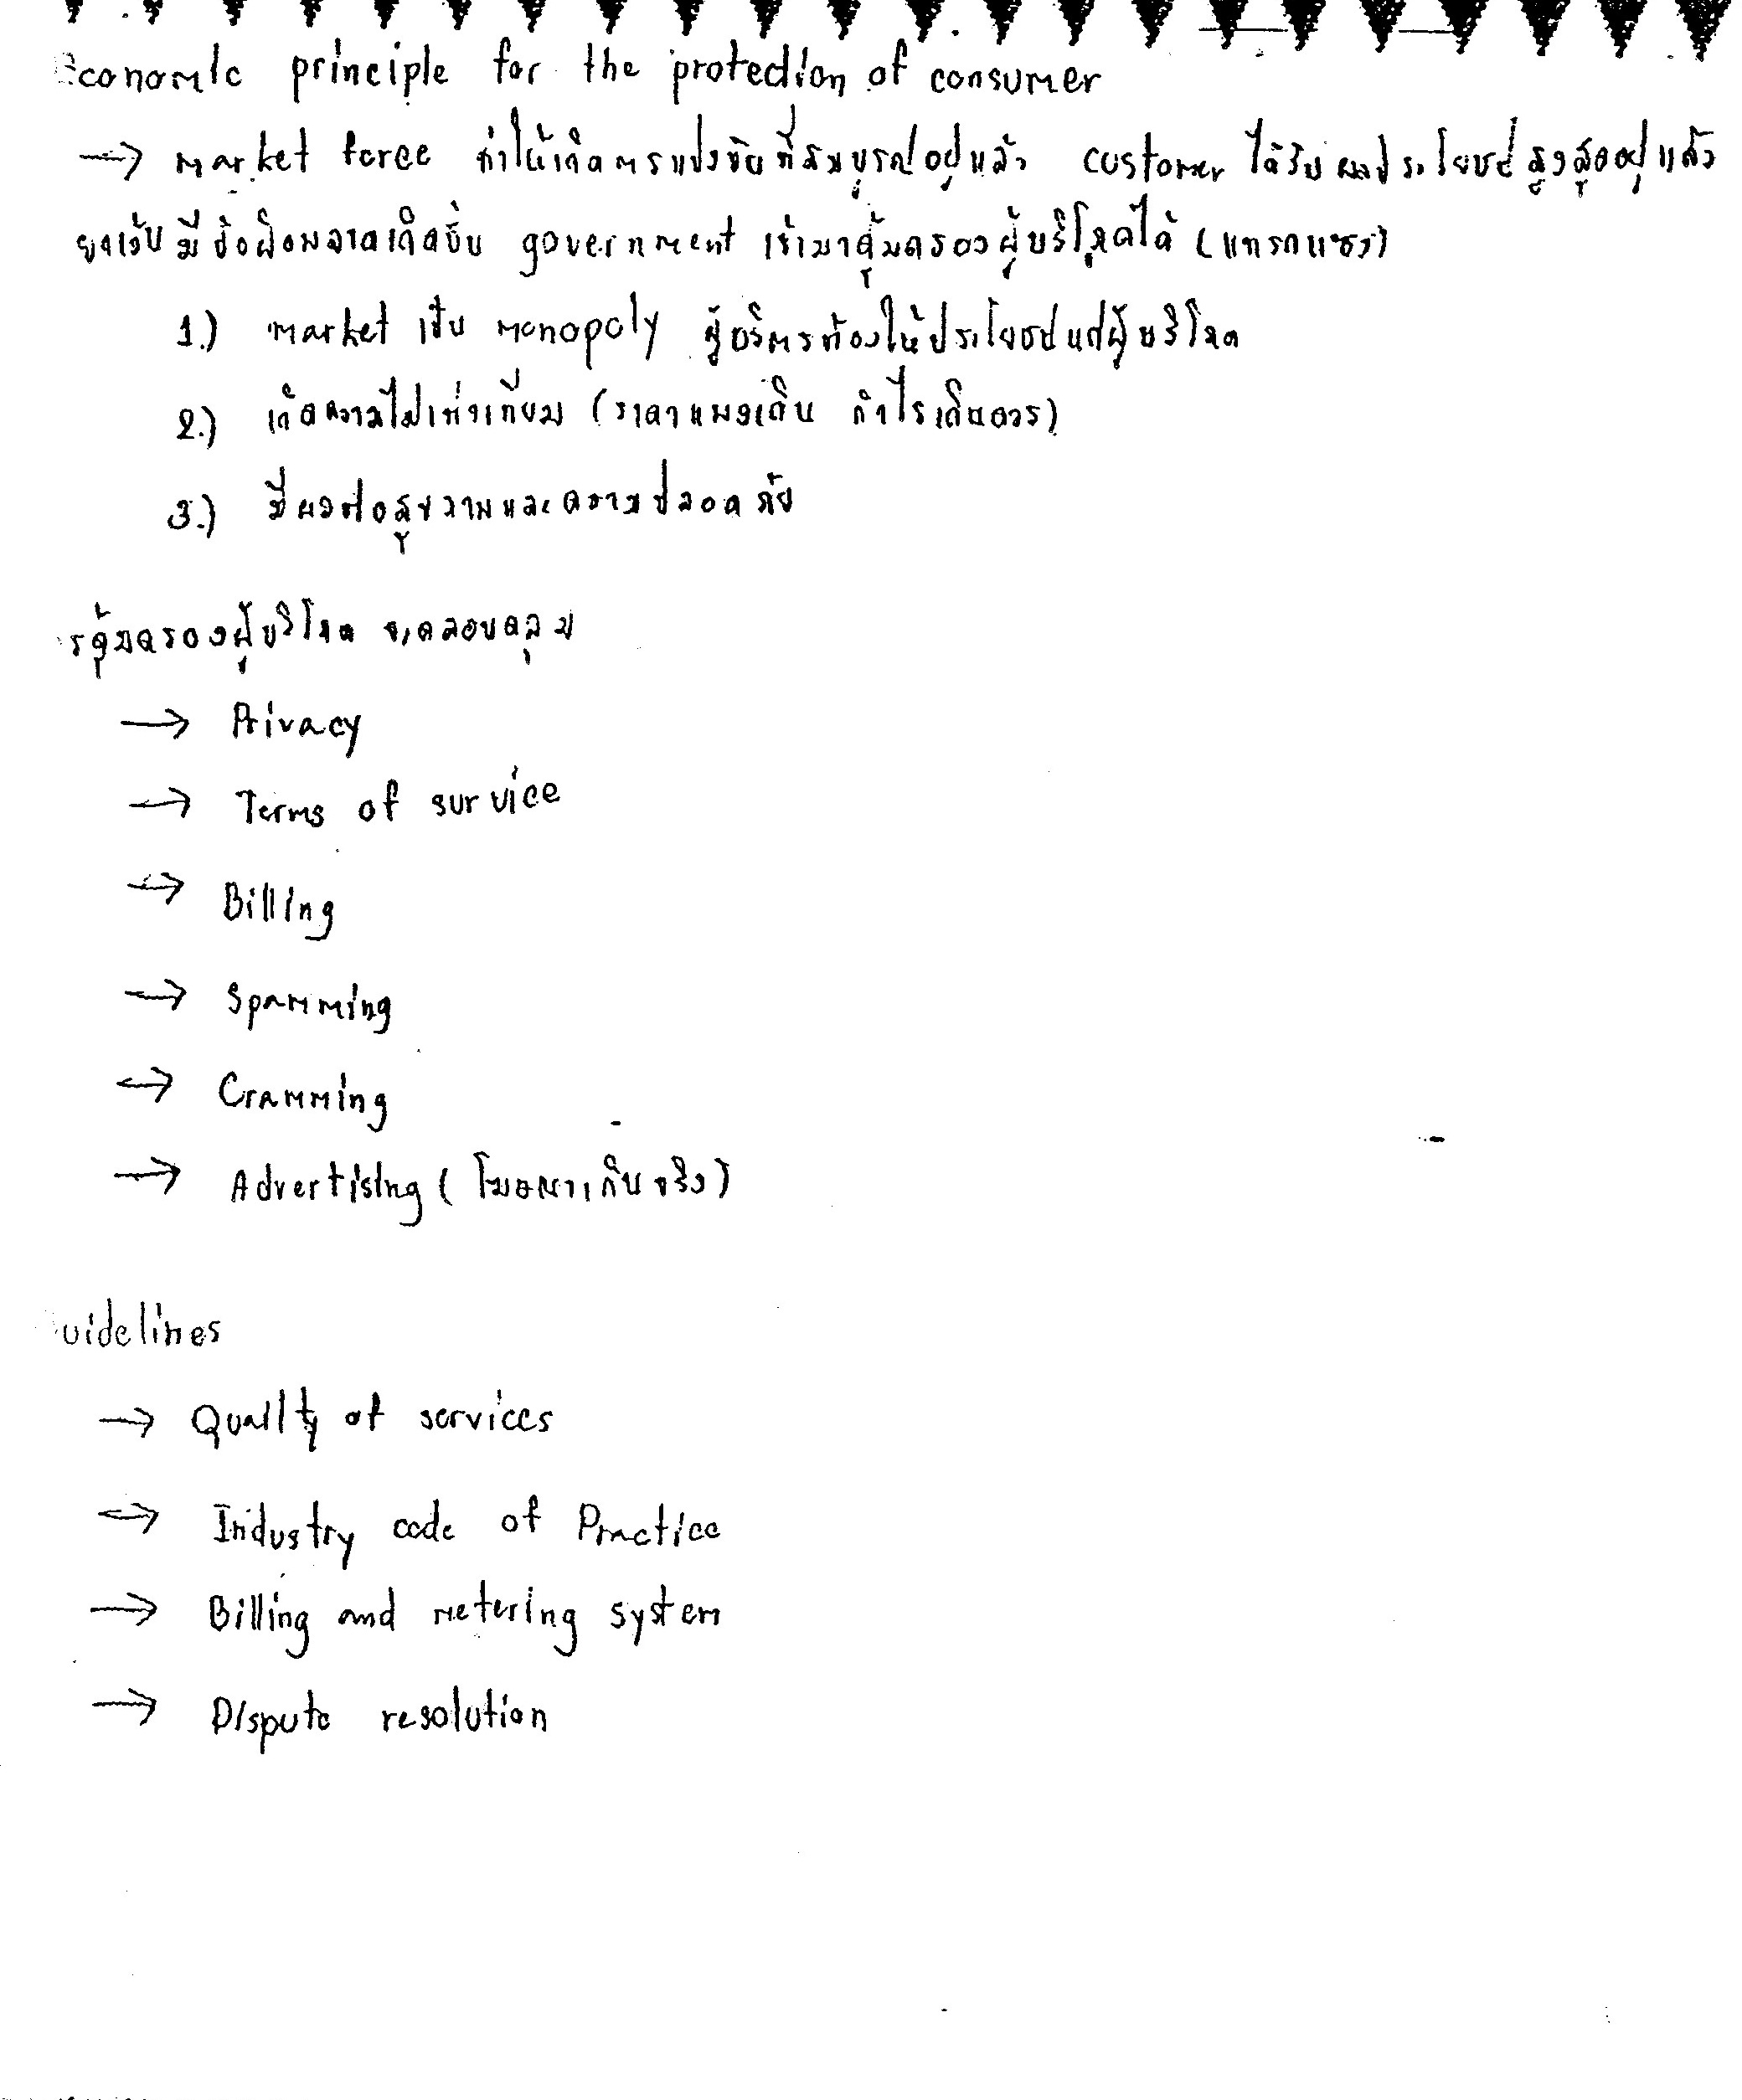 Economic principle for the protection of consumer
→ market force ทำให้เกิดการแข่งขันที่สมบูรณ์อยู่แล้ว customer ได้รับผลประโยชน์สูงสุดอยู่แล้ว
ยกเว้นมีข้อผิดพลาดเกิดขึ้น government เข้ามาคุ้มครองผู้บริโภคได้ (แทรกแซง)
1.) market เป็น monopoly ผู้บริการต้องให้ประโยชน์แก่ผู้บริโภค
2.) เกิดความไม่เท่าเทียม (ราคาแพงเกิน กำไรเกินควร)
3.) มีผลต่อสุขภาพและความปลอดภัย
รคุ้มครองผู้บริโภค จะครอบคลุม
→ Privacy
→ Terms of survice
→ Billing
→ Spamming
→ Cramming
→ Advertising (โฆษณาเกินจริง)
uidelines
→ Quality of services
→ Industry code of Practice
→ Billing and metering system
→ Dispute resolution